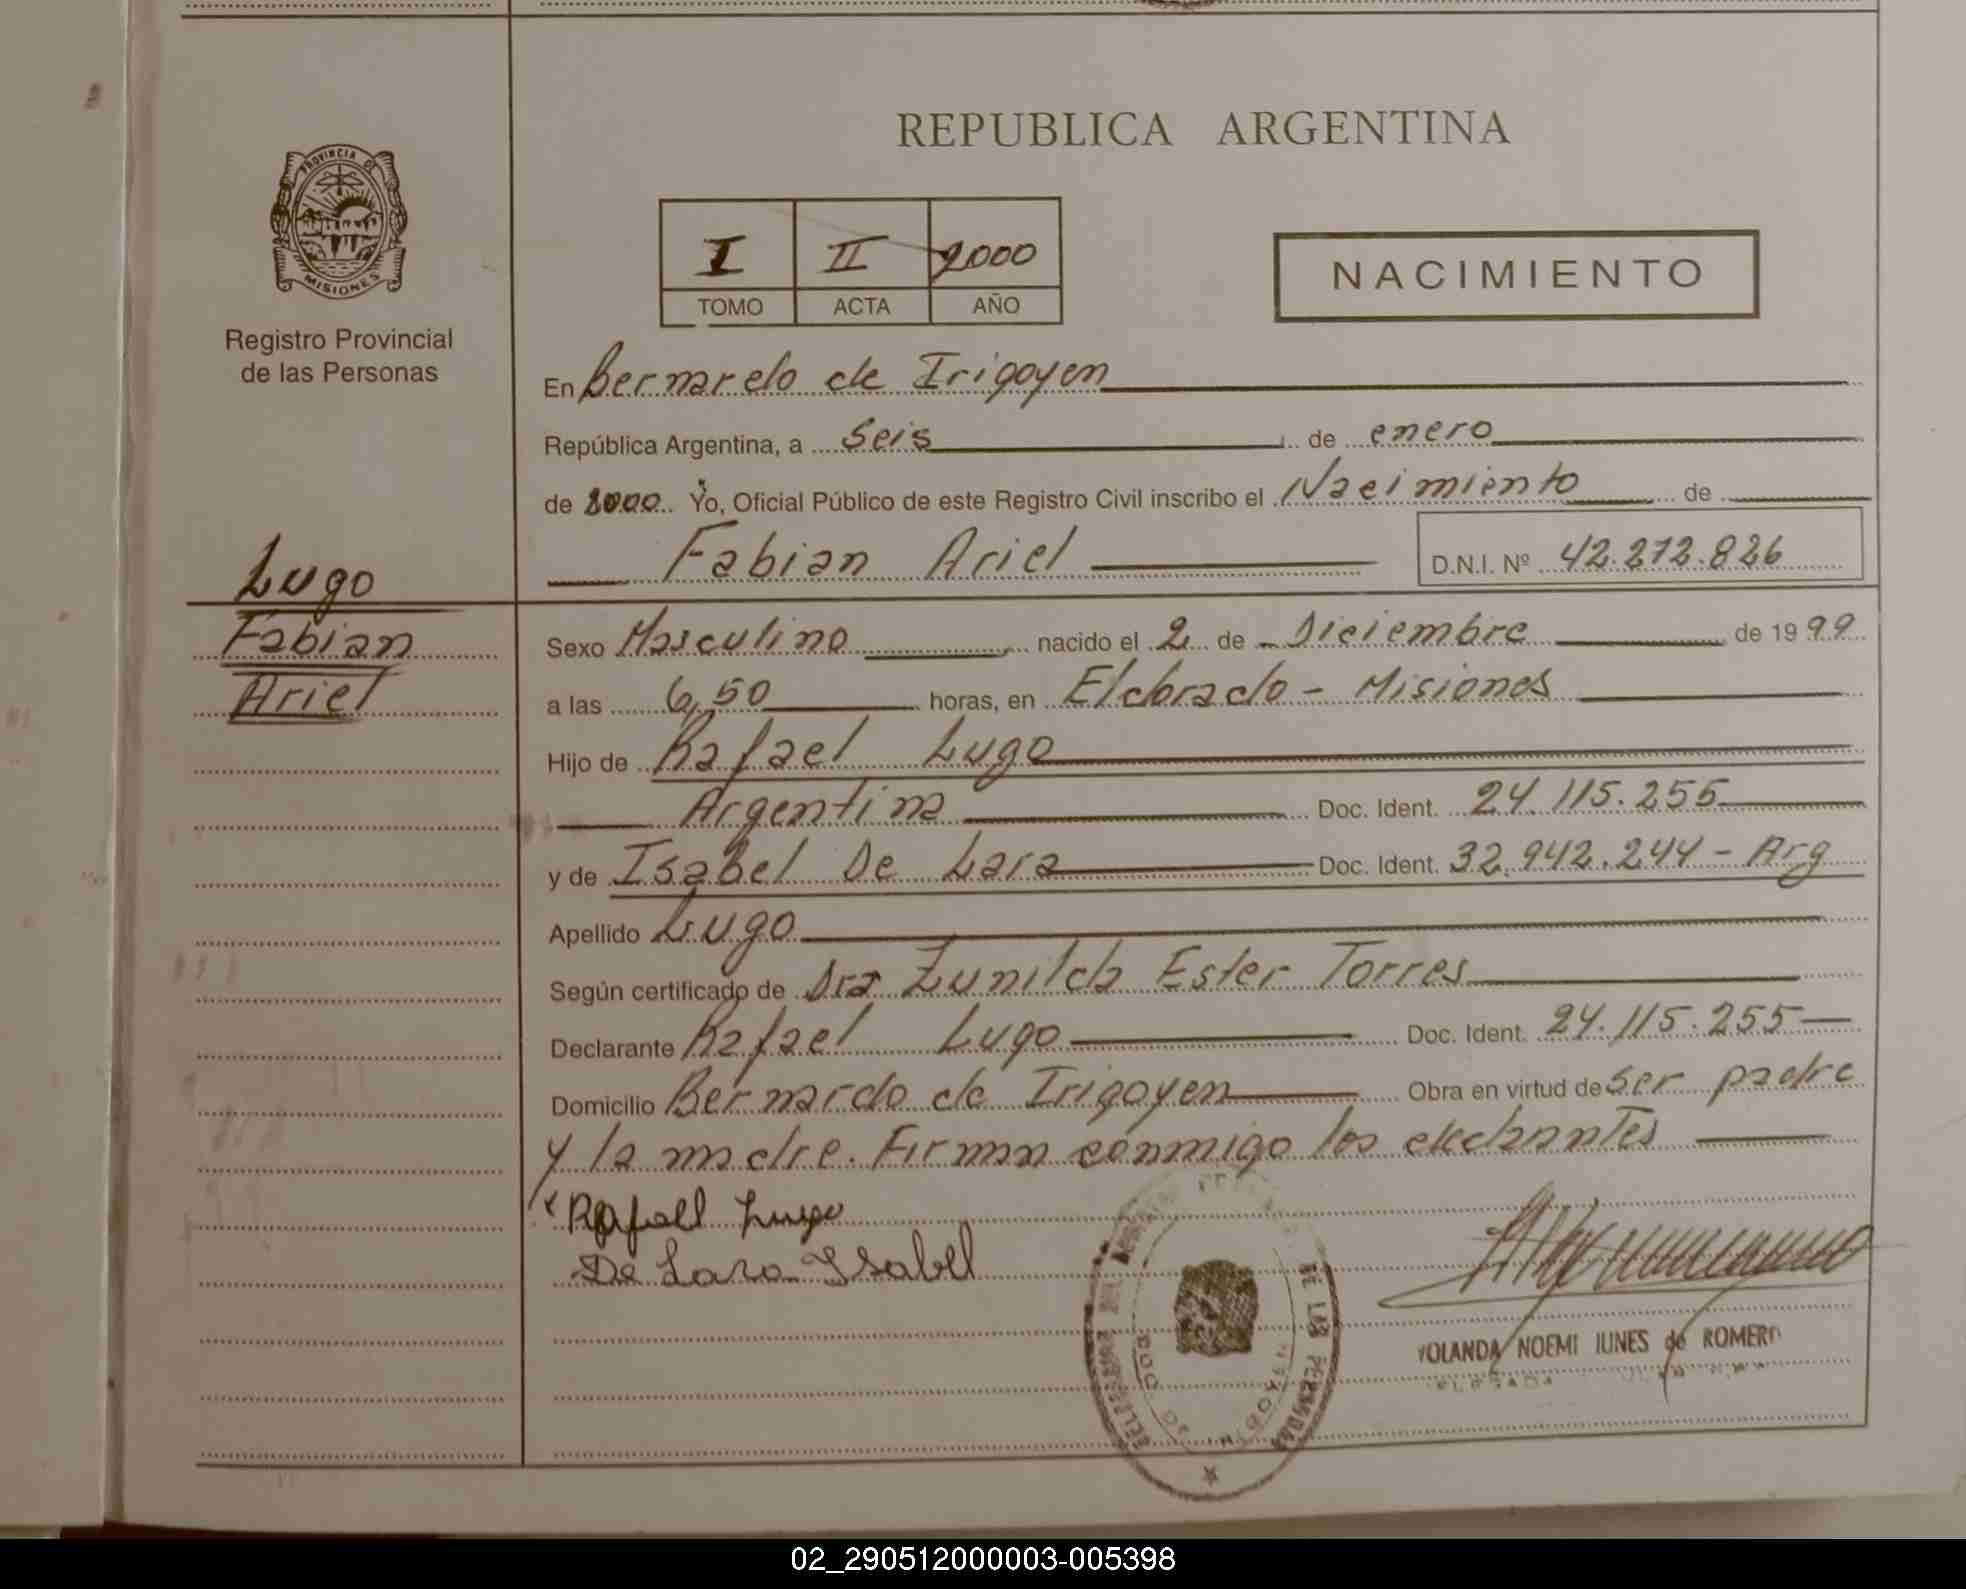 REPUBLICA ARGENTINA
PROVINCIA DE
MISIONES
Registro Provincial
de las Personas
I II 2000
TOMO ACTA AÑO
NACIMIENTO
En Bernardo de Irigoyen
República Argentina, a seis de enero
de 2000 Yo, Oficial Público de este Registro Civil inscribo el Nacimiento de
Fabian Ariel D.N.I. Nº 42.272.826
Lugo
Fabian
Ariel
Sexo Masculino nacido el 2 de Diciembre de 1999
a las 6,50 horas, en Eldorado - Misiones
Hijo de Rafael Lugo
Argentina Doc. Ident. 24.115.255
y de Isabel De Lara Doc. Ident. 32.942.244 - Arg
Apellido Lugo
Según certificado de Dra Zunilda Ester Torres
Declarante Rafael Lugo Doc. Ident. 24.115.255
Domicilio Bernardo de Irigoyen Obra en virtud de ser padre
y la madre. Firman conmigo los
Rafael Lugo
De Lara Ysabel
DE LAS PERSONAS
YOLANDA NOEMI IUNES de ROMERO
02_290512000003-005398